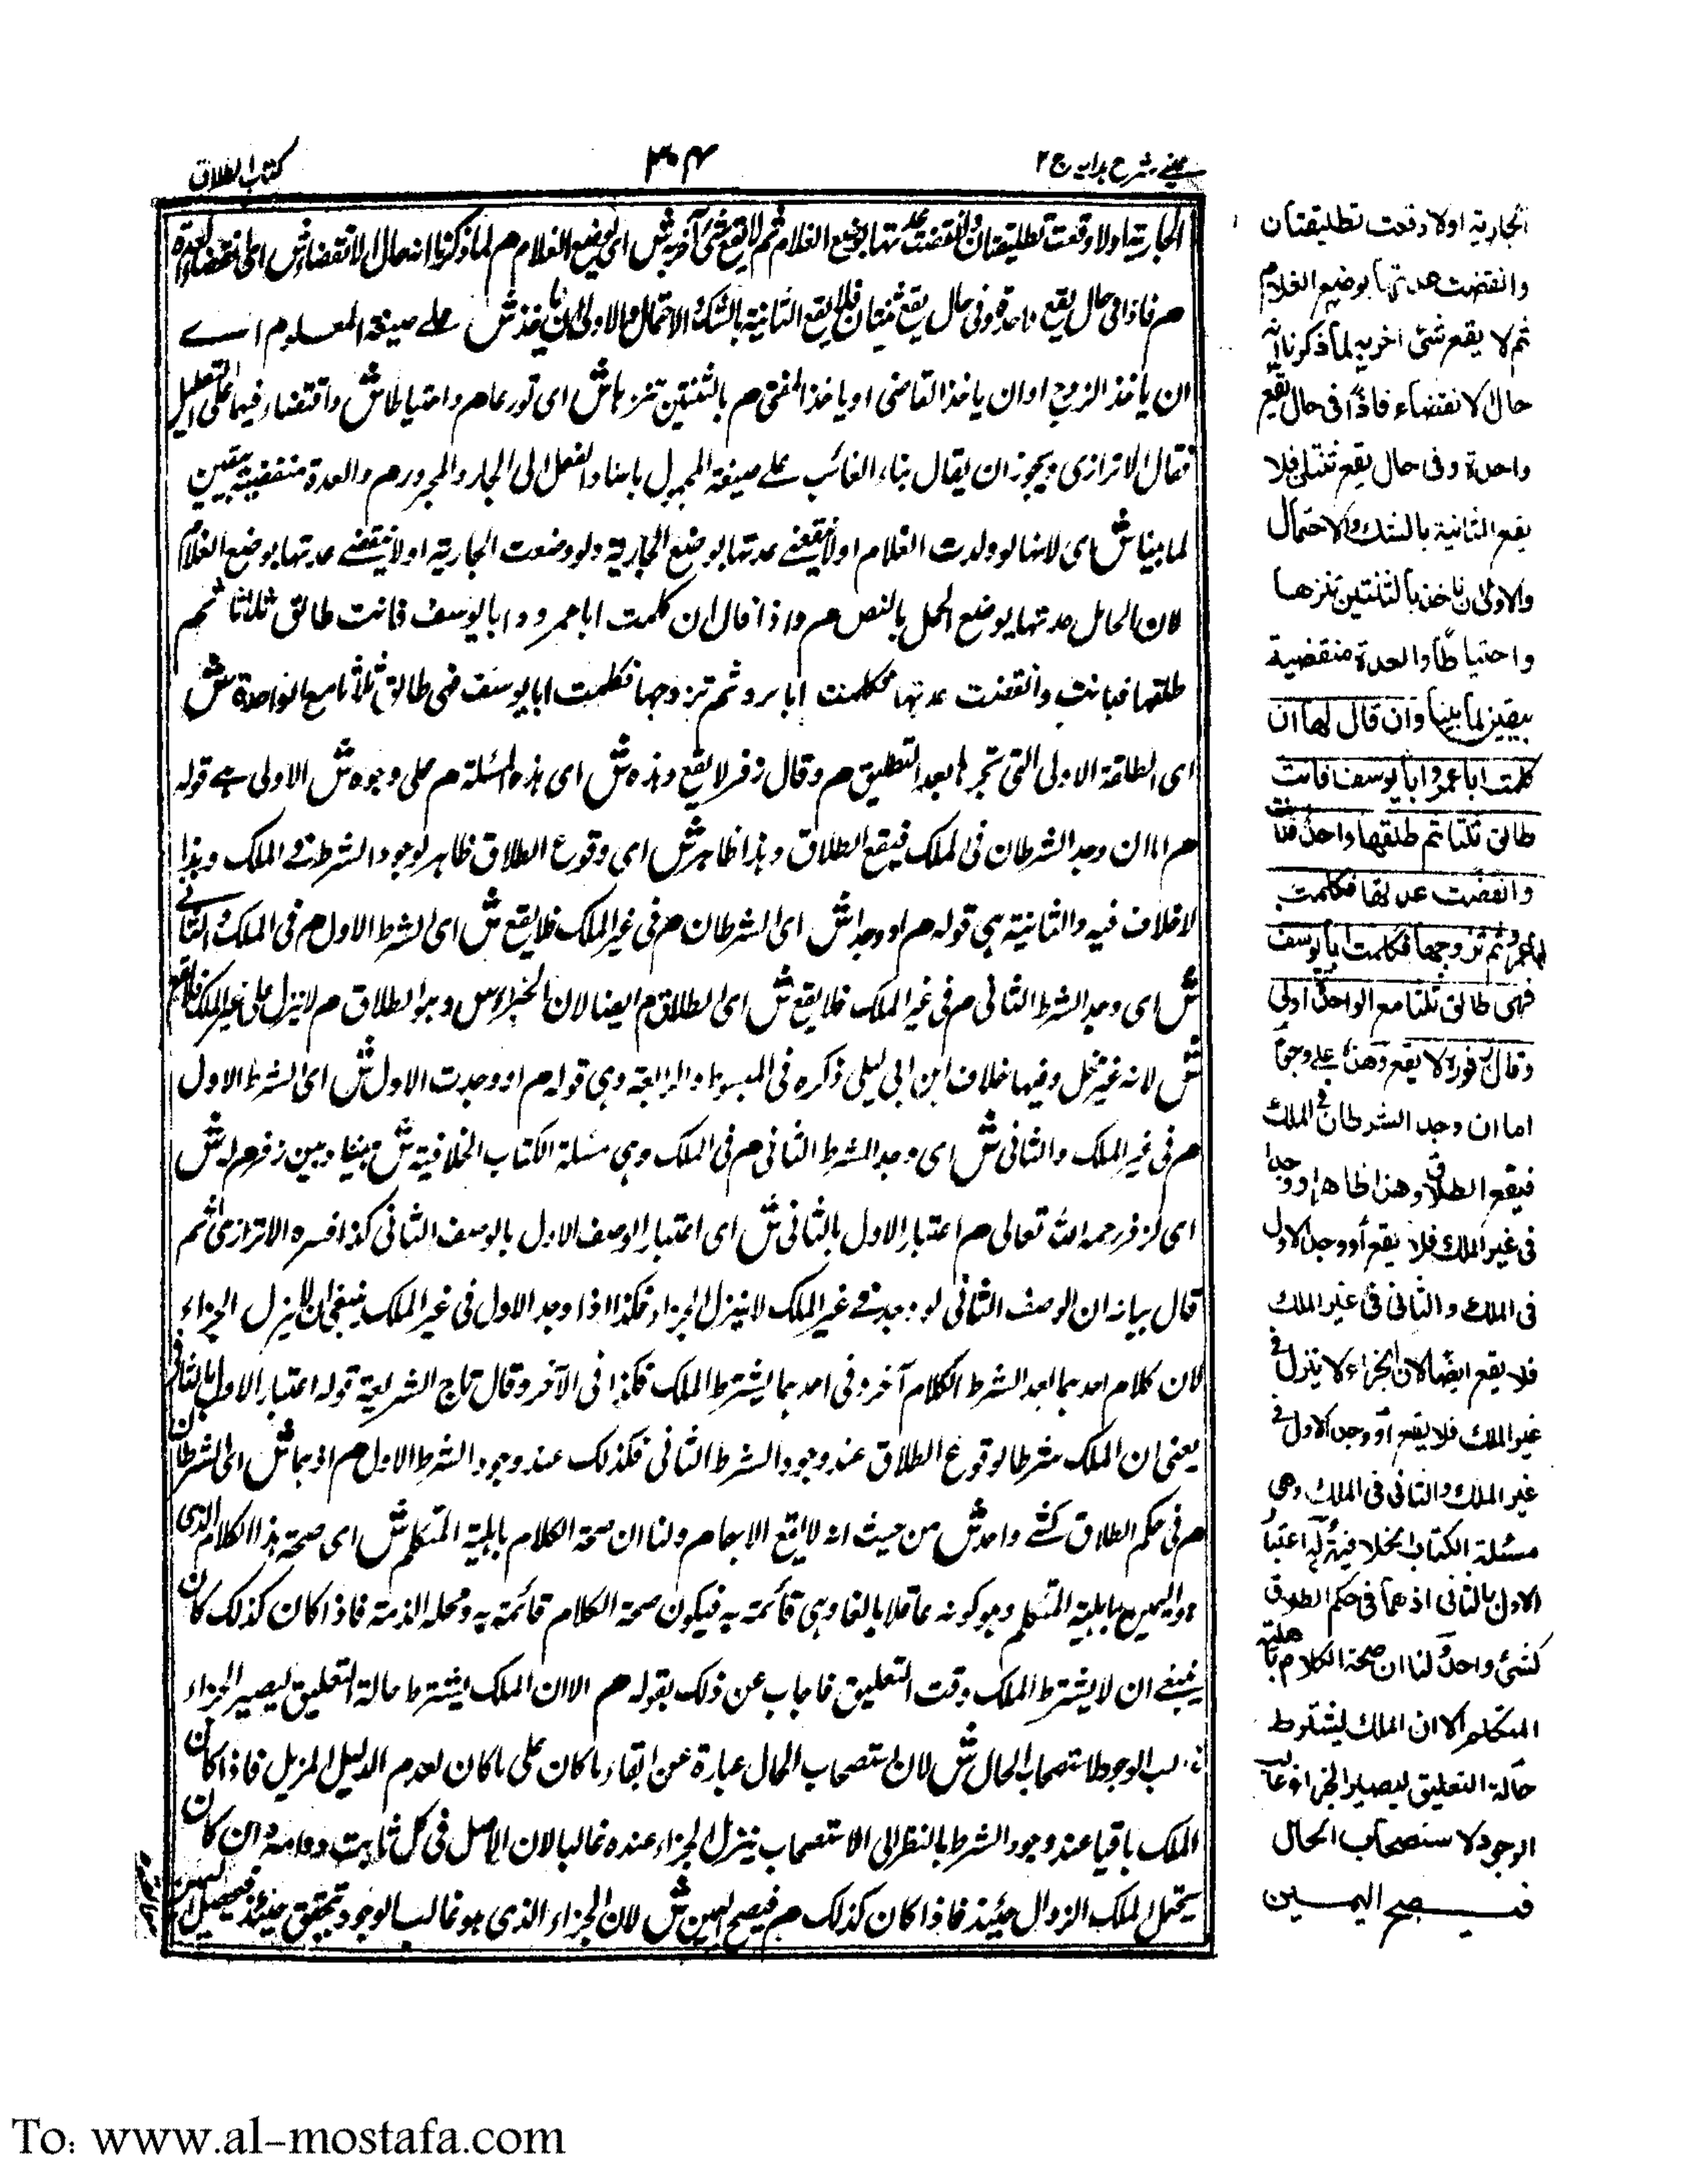 عيني شرح هدايه ج ٢
٣٠٤
كتاب الطلاق
الجارية اولا وقعت تطليقتان وانقضت عدتها بوضع الغلام ثم لا يقع شئ آخر به ش اى بوضع الغلام هم لما ذكرنا انه حال الانقضاء ش اى انقضاء العدة
هم فاذا فى حال يقع واحدة وفى حال يقع ثنتان فلا يقع الثانية بالشك والاحتمال والاولى ان ياخذ ش على صيغة المعلوم اے
ان ياخذ الزوج او ان ياخذ القاضى او ياخذ المفتى هم بالثنتين تنزها ش اى تورعا هم واحتياطا ش وانتصابهما على التعليل
فقال الاترازى ويجوز ان يقال بناء الغائب على صيغة المجهول باسناد الفعل الى الجار والمجرور هم والعدة منقضية بيقين
لما بينا ش اى لانها لو ولدت الغلام اولا تنقضے عدتها بوضع الجارية ولو وضعت الجارية اولا تنقضے عدتها بوضع الغلام
لان الحامل عدتها بوضع الحمل بالنص هم واذا قال ان كلمت ابا عمرو وابا يوسف فانت طالق ثلاثا ثم
طلقها فبانت وانقضت عدتها فكلمت ابا عمرو ثم تزوجها فكلمت ابا يوسف فهى طالق ثلاثا مع الواحدة ش
اى الطلقة الاولى التى نجزها بعد التعليق هم وقال زفر لا يقع وهذه ش اى هذه المسئلة هم على وجوه ش الاولى هے قوله
هم اما ان وجد الشرطان فى الملك فيقع الطلاق وهذا ظاهر ش اى وقوع الطلاق ظاهر لوجود الشرط فے الملك وهذا
لا خلاف فيه والثانية هى قوله هم او وجدا ش اى الشرطان هم فى غير الملك فلا يقع ش اى الشرط الاول هم فى الملك والثانے
ش اى وجد الشرط الثانى هم فى غير الملك فلا يقع ش اى الطلاق هم ايضا لان الجزاء ش وهو الطلاق هم لا ينزل على غير الملك فلا يقع
ش لانه غير محل وفيها خلاف ابن ابى ليلى ذكره فى المبسوط والرابعة وهى قوله هم او وجدت الاول ش اى الشرط الاول
هم فى غير الملك والثانى ش اى وجد الشرط الثانى هم فى الملك وهى مسئلة الكتاب الخلافية ش بيننا وبين زفر هم له ش
اى لزفر رحمه الله تعالى هم اعتبار الاول بالثانى ش اى اعتبار الوصف الاول بالوصف الثانى كذا فسره الاترازى ثم
قال بيانه ان الوصف الثانى لو وجد فے غير الملك لا ينزل الجزاء فكذا اذا وجد الاول فى غير الملك ينبغى ان لا ينزل الجزاء
لان كلام احدهما بعد الشرط الكلام آخر وفى احدهما يشترط الملك فكذا فى الآخر وقال تاج الشريعة قوله اعتبار الاول بالثانى
يعنى ان الملك شرط لوقوع الطلاق عند وجود الشرط الثانى فكذلك عند وجود الشرط الاول هم اذ هما ش اى الشرطان
هم فى حكم الطلاق كشے واحد ش من حيث انه لا يقع الا بهما هم ولنا ان صحة الكلام باهلية المتكلم ش اى صحة هذا الكلام الذى
هو اليمين باهلية المتكلم وهو كونه عاقلا بالغا وهى قائمة به فيكون صحة الكلام قائمة به ومحله الذمة فاذا كان كذلك كان
ينبغے ان لا يشترط الملك وقت التعليق فاجاب عن ذلك بقوله هم الا ان الملك يشترط حالة التعليق ليصير الجزاء
غالب الوجود لاستصحاب الحال ش لان استصحاب الحال عبارة عن ابقاء ما كان على ما كان لعدم الدليل المزيل فاذا كان
الملك باقيا عند وجود الشرط بالنظر الى الاستصحاب ينزل الجزاء عنده غالبا لان الاصل فى كل ثابت دوامه وان كان
يحتمل الملك الزوال حينئذ فاذا كان كذلك هم فيصح اليمين ش لان الجزاء الذى هو غالب الوجود يتحقق حينئذ فيحصل اليمين
الجارية اولا وقعت تطليقتان
وانقضت عدتها بوضع الغلام
ثم لا يقع شئ اخر به لما ذكرنا انه
حال الانقضاء فاذًا فى حال يقع
واحدة وفى حال يقع ثنتان فلا
يقع الثانية بالشك والاحتمال
والاولى ان ناخذ بالثنتين تنزها
واحتياطًا والعدة منقضية
بيقين لما بينا وان قال لها ان
كلمت ابا عمرو وابا يوسف فانت
طالق ثلثا ثم طلقها واحدة فبانت
وانقضت عدتها فكلمت
ابا عمرو ثم تزوجها فكلمت ابا يوسف
فهى طالق ثلثا مع الواحدة اولى
وقال زفر رح لا يقع وهذه على وجوه
اما ان وجد الشرطان فى الملك
فيقع الطلاق وهذا ظاهر او وجدا
فى غير الملك فلا يقع أو وجد الاول
فى الملك والثانى فى غير الملك
فلا يقع ايضًا لان الجزاء لا ينزل فى
غير الملك فلا يقع أو وجد الاول فى
غير الملك والثانى فى الملك وهى
مسئلة الكتاب الخلافية له اعتبار
الاول بالثانى اذ هما فى حكم الطلاق
كشئ واحد ولنا ان صحة الكلام باهلية
المتكلم الا ان الملك يشترط
حالة التعليق ليصير الجزاء غالب
الوجود لاستصحاب الحال
فيصح اليمين
To: www.al-mostafa.com